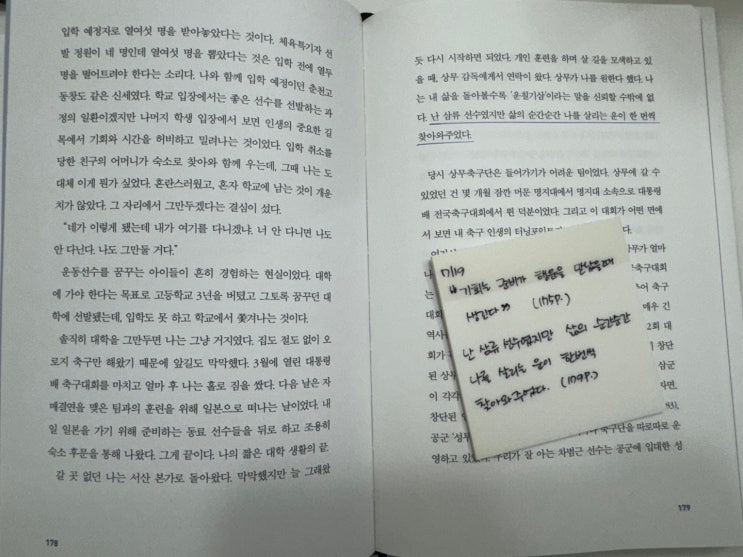 입학 예정자로 열여섯 명을 받아놓았다는 것이다. 체육특기자 선
발 정원이 네 명인데 열여섯 명을 뽑았다는 것은 입학 전에 열두
명을 떨어트려야 한다는 소리다. 나와 함께 입학 예정이던 춘천고
동창도 같은 신세였다. 학교 입장에서는 좋은 선수를 선발하는 과
정의 일환이겠지만 나머지 학생 입장에서 보면 인생의 중요한 길
목에서 기회와 시간을 허비하고 밀려나는 것이었다. 입학 취소를
당한 친구의 어머니가 숙소로 찾아와 함께 우는데, 그때 나는 도
대체 이게 뭔가 싶었다. 혼란스러웠고, 혼자 학교에 남는 것이 개운
치가 않았다. 그 자리에서 그만두겠다는 결심이 섰다.
“네가 이렇게 됐는데 내가 여기를 다니겠냐. 너 안 다니면 나도
안 다닌다. 나도 그만둘 거다.”
운동선수를 꿈꾸는 아이들이 흔히 경험하는 현실이었다. 대학
에 가야 한다는 목표로 고등학교 3년을 버텼고 그토록 꿈꾸던 대
학에 선발됐는데, 입학도 못 하고 학교에서 쫓겨나는 것이다.
솔직히 대학을 그만두면 나는 그냥 거지였다. 집도 절도 없이 오
로지 축구만 해왔기 때문에 앞길도 막막했다. 3월에 열린 대통령
배 축구대회를 마치고 얼마 후 나는 홀로 짐을 쌌다. 다음 날은 자
매결연을 맺은 팀과의 훈련을 위해 일본으로 떠나는 날이었다. 내
일 일본을 가기 위해 준비하는 동료 선수들을 뒤로 하고 조용히
숙소 후문을 통해 나왔다. 그게 끝이다. 나의 짧은 대학 생활의 끝.
갈 곳 없던 나는 서산 본가로 돌아왔다. 막막했지만 늘 그래왔
178
듯 다시 시작하면 되었다. 개인 훈련을 하며 살 길을 모색하고 있
을 때, 상무 감독에게서 연락이 왔다. 상무가 나를 원한다 했다. 나
는 내 삶을 돌아볼수록 ‘운칠기삼’이라는 말을 신뢰할 수밖에 없
다. 난 삼류 선수였지만 삶의 순간순간 나를 살리는 운이 한 번씩
찾아와주었다.
당시 상무축구단은 들어가기가 어려운 팀이었다. 상무에 갈 수
있었던 건 몇 개월 잠깐 머문 명지대에서 명지대 소속으로 대통령
배 전국축구대회에서 뛴 덕분이었다. 그리고 이 대회가 어떤 면에
서 보면 내 축구 인생의 터닝포인트
상무가 얼마
축구대회
어 축구
대회
매우 긴
역사
2회 대
회가
창단
된 상
삼군
이 각각
자면,
창단된
공군 ‘성무
축구단을 따로따로 운
영하고 있
우리가 잘 아는 차범근 선수는 공군에 입대한 성
179
7/19
“기회는 준비가 행운을 만났을때
생긴다” (175P.)
난 삼류 선수였지만 삶의 순간순간
나를 살리는 운이 한번씩
찾아와주었다. (179P.)